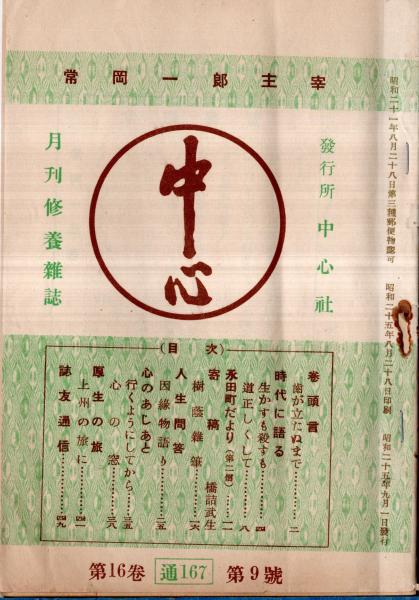 常岡一郎主宰
月刊修養雜誌
中心
發行所 中心社
昭和二十一年八月二十八日第三種郵便物認可 昭和二十五年八月二十八日印刷 昭和二十五年九月一日發行
(目次)
卷頭言
歯が立たぬまで………二
時代に語る
生かすも殺すも………四
道正しくして………八
永田町だより(第二信)……
寄稿 橋詰武生
樹蔭雜筆………
人生問答
因緣物語り………
心のあしあと
行くようにしてから………三五
心の窓………三八
厚生の旅
上州の旅に………四一
誌友通信………四九
第16卷 通167 第9號